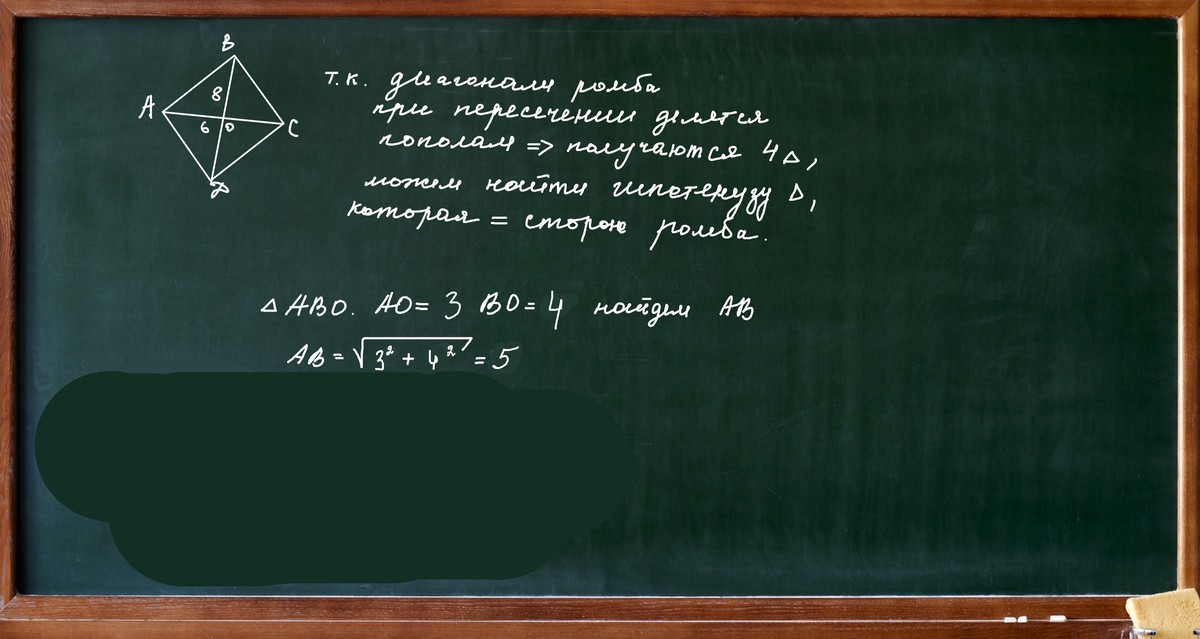 B
8
A
6 0
C
D
т.к. диагонали ромба
при пересечении делятся
пополам => получаются 4△,
можем найти гипотенузу △,
которая = стороне ромба.
△ ABO. AO= 3 BO= 4 найдем AB
AB = √3² + 4² = 5